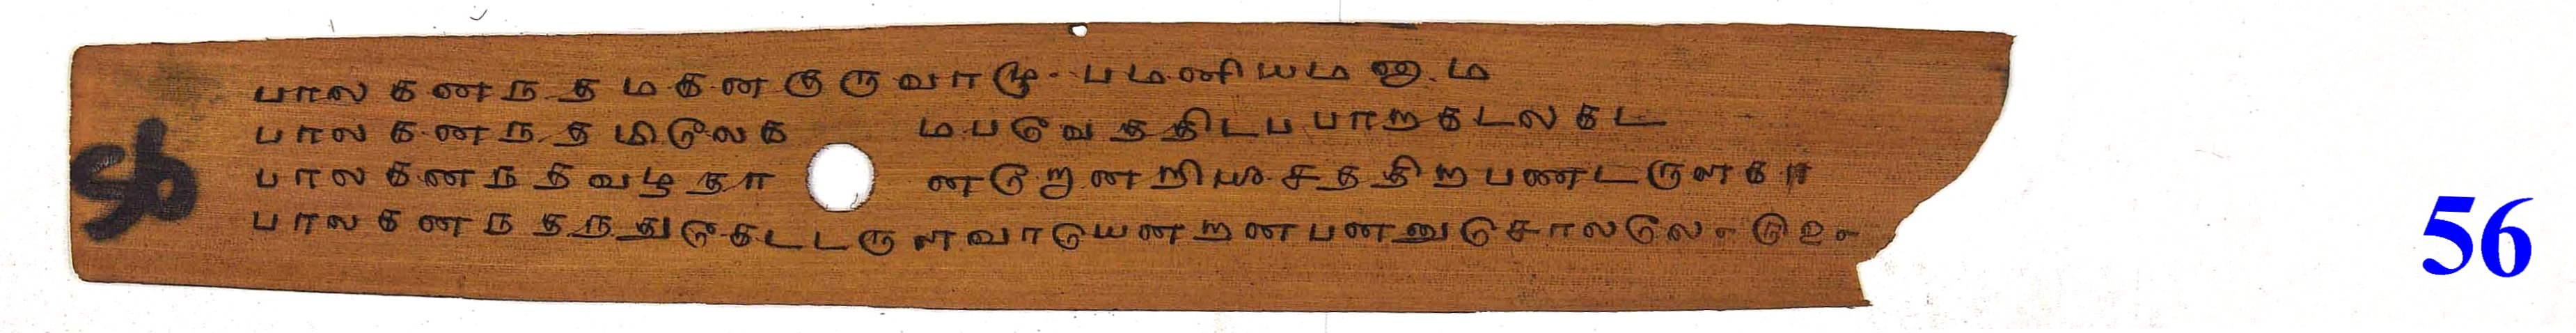 பாலகனநதமகனகுருவாமு பமணியமனும
பாலகனநதமிலெக மபவெததிடபபாறகடலகட
பாலகனநதவழநா னறெனறியுசததிறபணடருளகா
பாலகனநதநதுகெடடருளவாயெனறனபனனுசொலலெ
56